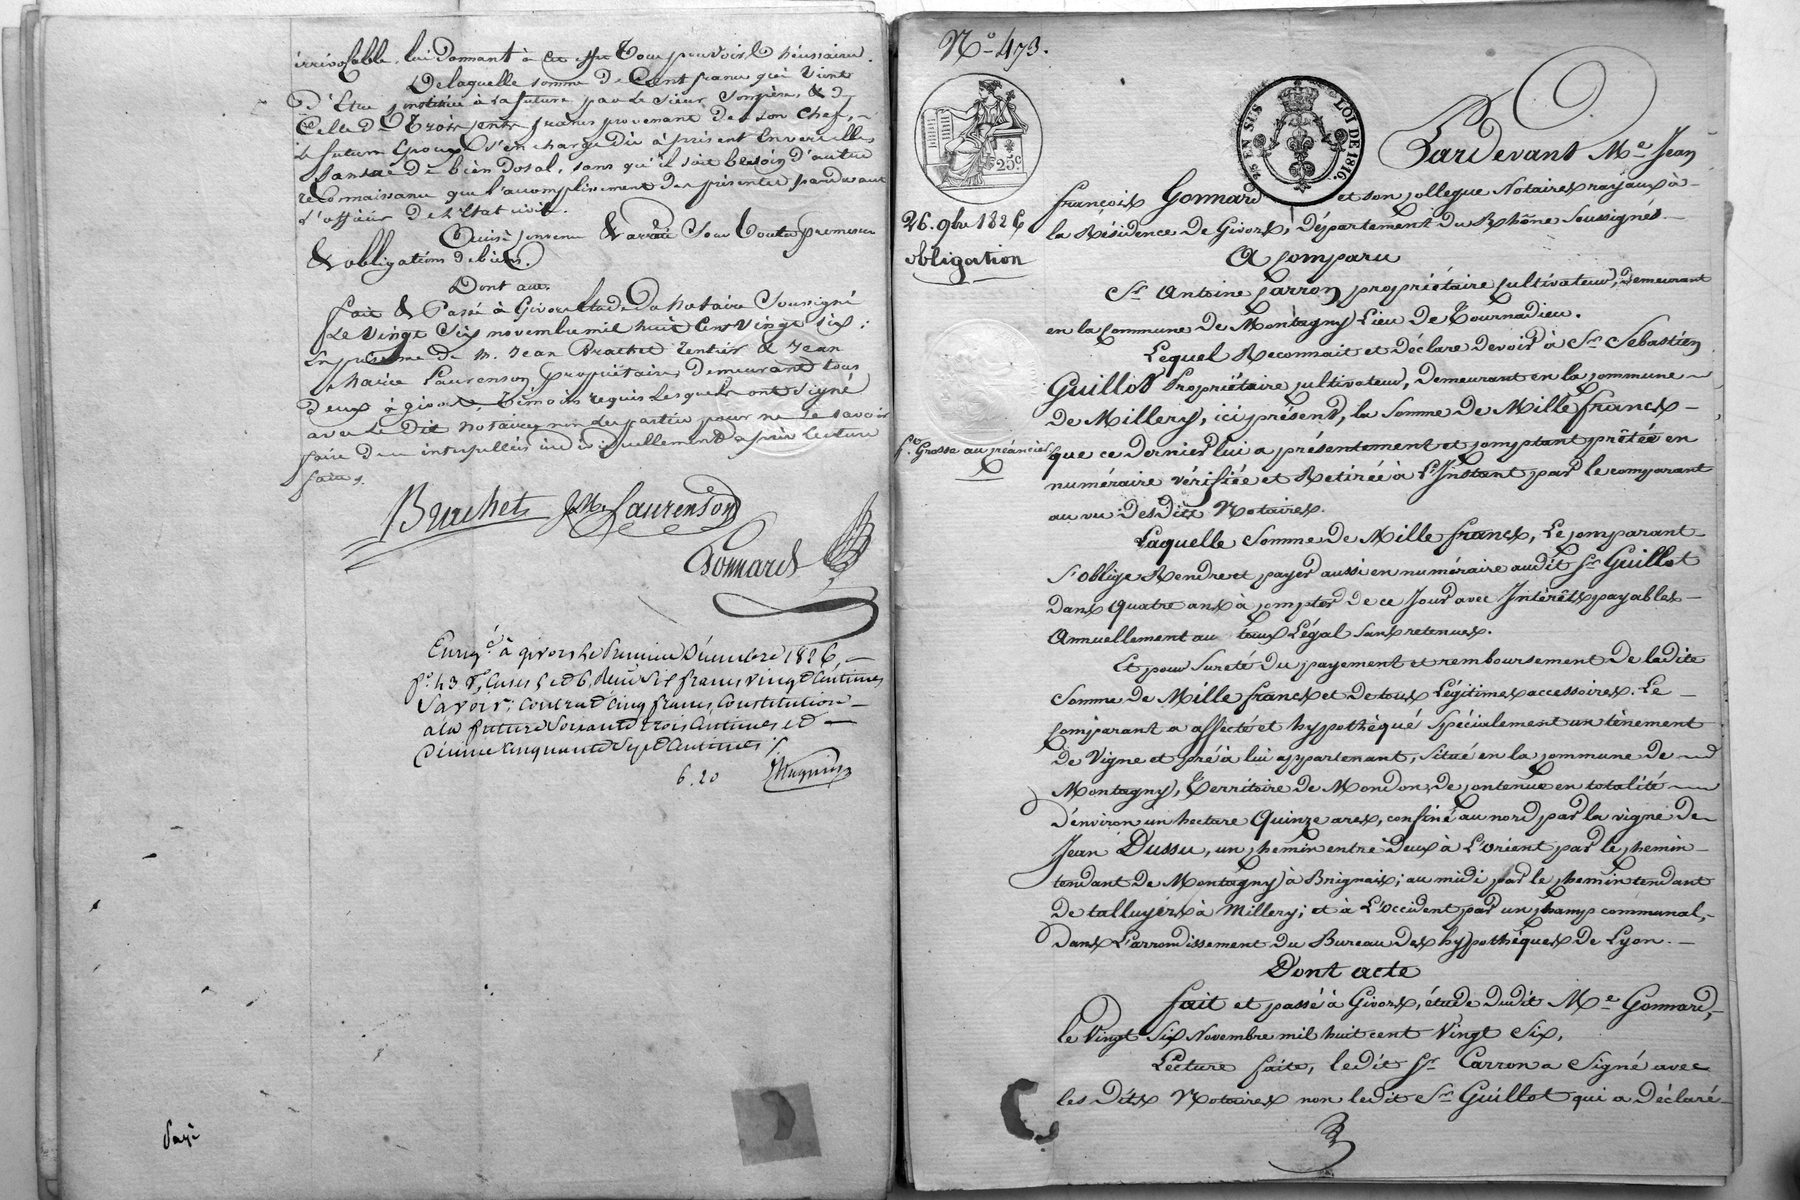 irrévocable, lui donnant à cet effet Tous pouvoirs nécessaires.
De laquelle somme de Cent francs qui vient
d'être constituée à la future par le Sieur & de
Celle de Trois cents francs provenant de son chef,
le futur Epoux s'en charge dès à présent Envers elle
de bien dotal, sans qu'il soit besoin d'autre
reconnaissance que l'accomplissement des présentes pardevant
l'officier de l'état civil.
Ainsi convenu & arrêté Sous toutes promesses
& obligations de biens.
Dont acte
fait & Passé à Givors Etude du notaire Soussigné
Le vingt Six novembre mil huit Cent vingt Six;
En présence de M. Jean Brachet rentier & Jean
Marie Laurenson, propriétaire, demeurant tous
deux à givors, témoins requis Lesquels ont Signé
avec le dit notaire, non les parties pour ne le savoir
faire de ce interpellées individuellement après lecture
faite.
Brachet JM Laurenson
Gonnard
Enregé à givors le Premier Décembre 1826,
fo. 43 Ro, Cases 5 et 6, Reçu Six francs vingt Centimes
Savoir: Contrat Cinq francs, Constitution
à la future Soixante trois Centimes et
Décime Cinquante Sept Centimes
6.20
payé
No. 473.
25 c.
25 EN SUS
LOI DE 1816.
Pardevant Me. Jean
françois Gonnard et son collegue Notaires royaux à
la Résidence de Givors, département du Rhône Soussignés.
26. 9bre 1826
obligation
A comparu
Sr. Antoine Carron propriétaire cultivateur, demeurant
en la commune de Montagny Lieu de Tournadieu.
Lequel Reconnait et déclare devoir à Sr. Sebastien
Guillot Propriétaire cultivateur, demeurant en la commune
de Millery, ici présent, la Somme de Mille francs
fe. Grosse au créancier
que ce dernier lui a présentement et comptant prêtée en
numéraire vérifiée et Retirée à L'Instant par le comparant
au vu desdits Notaires.
Laquelle Somme de Mille francs, Le comparant
s'oblige Rendre et payer aussi en numéraire audit Sr. Guillot
dans quatre ans à compter de ce Jour avec Intérêts payables
annuellement au taux Légal sans retenues.
Et pour Sureté du payement et remboursement de ladite
Somme de Mille francs et de tous Légitimes accessoires. Le
comparant a affecté et hypothéqué Spécialement un ténement
de Vigne et pré à lui appartenant, situé en la commune de
Montagny, Territoire de Mondon, de contenue en totalité
d'environ un hectare Quinze ares, confiné au nord par la vigne de
Jean Dussu, un chemin entre deux à L'orient par le chemin
tendant de Montagny à Brignais; au midi par le chemin tendant
de talluyers à Millery; et à L'occident par un champ communal,
dans L'arrondissement du Bureau des hypothéques de Lyon.
Dont acte
fait et passé à Givors, étude dudit Me. Gonnard,
le Vingt Six Novembre mil huit cent Vingt Six.
Lecture faite, ledit Sr. Carron a Signé avec
les dits Notaires non ledit Sr. Guillot qui a déclaré